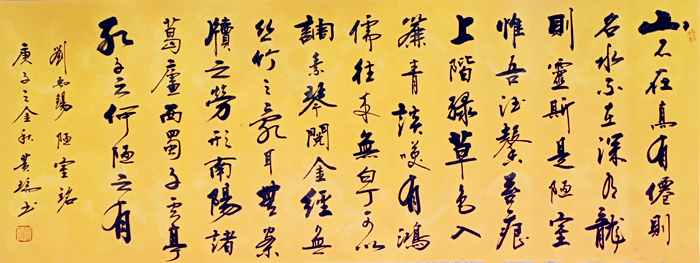 山不在高有僊則
名水不在深有龍
則靈斯是陋室
惟吾德馨苔痕
上階綠草色入
簾青談笑有鴻
儒往來無白丁可以
調素琴閱金經無
絲竹之亂耳無案
牘之勞形南陽諸
葛廬西蜀子雲亭
孔子云何陋之有
劉禹錫 陋室銘
庚子之金秋